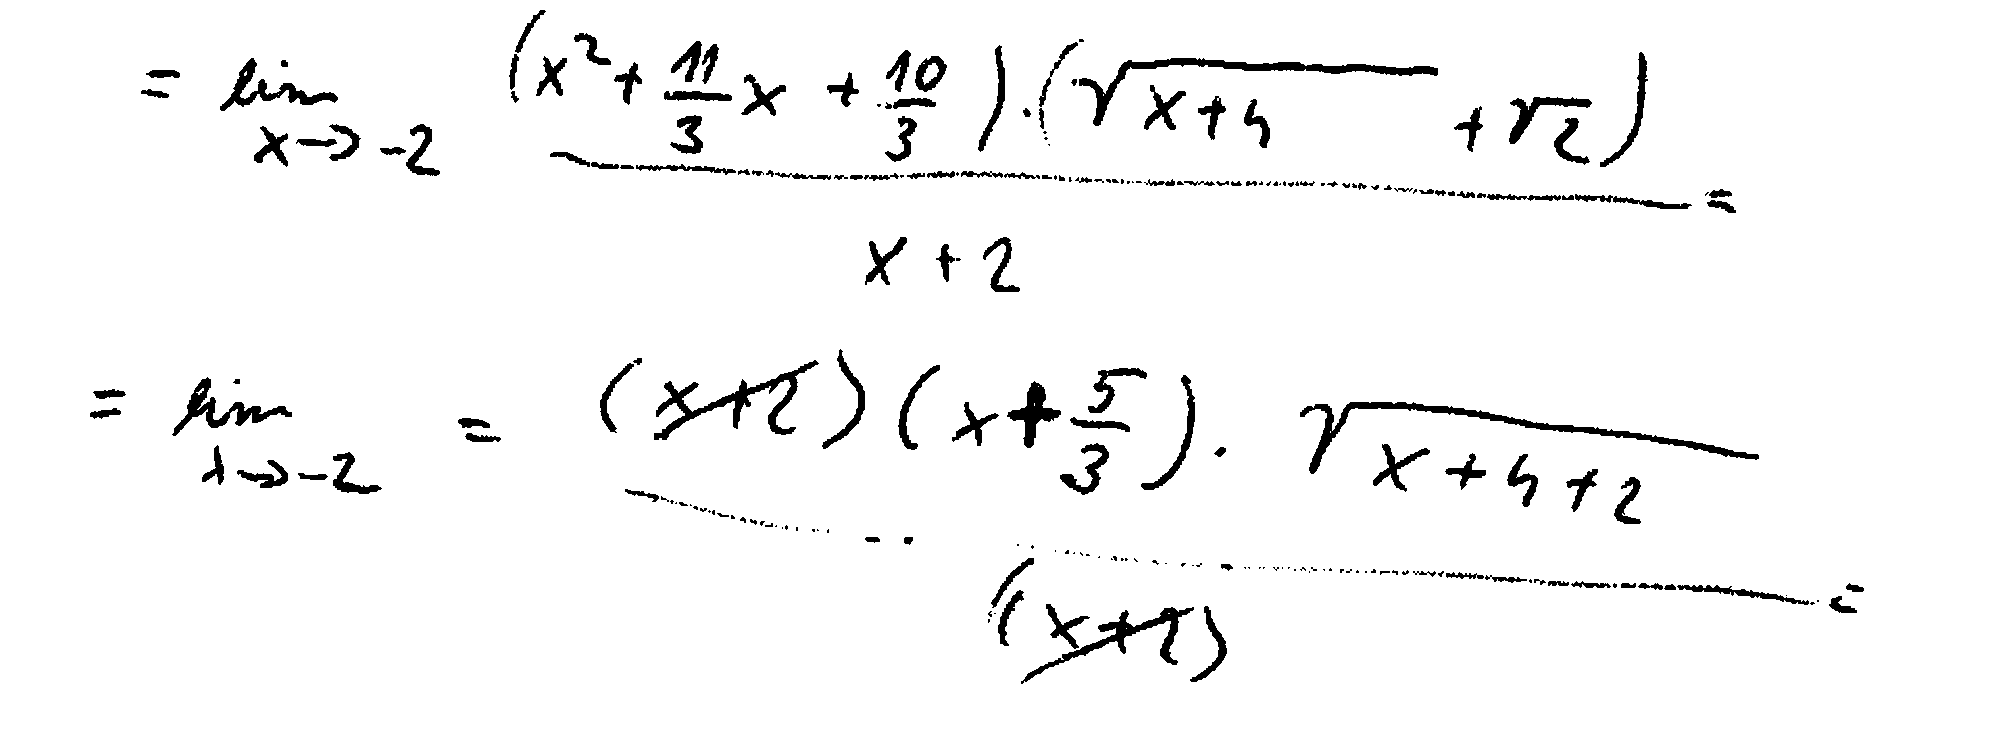 = lim_{x→-2} \frac{(x^2 + \frac{11}{3}x + \frac{10}{3}) \cdot (\sqrt{x+4} + \sqrt{2})}{x+2} =
= lim_{x→-2} = \frac{(x+2)(x + \frac{5}{3}) \cdot \sqrt{x+4+2}}{(x+2)} =